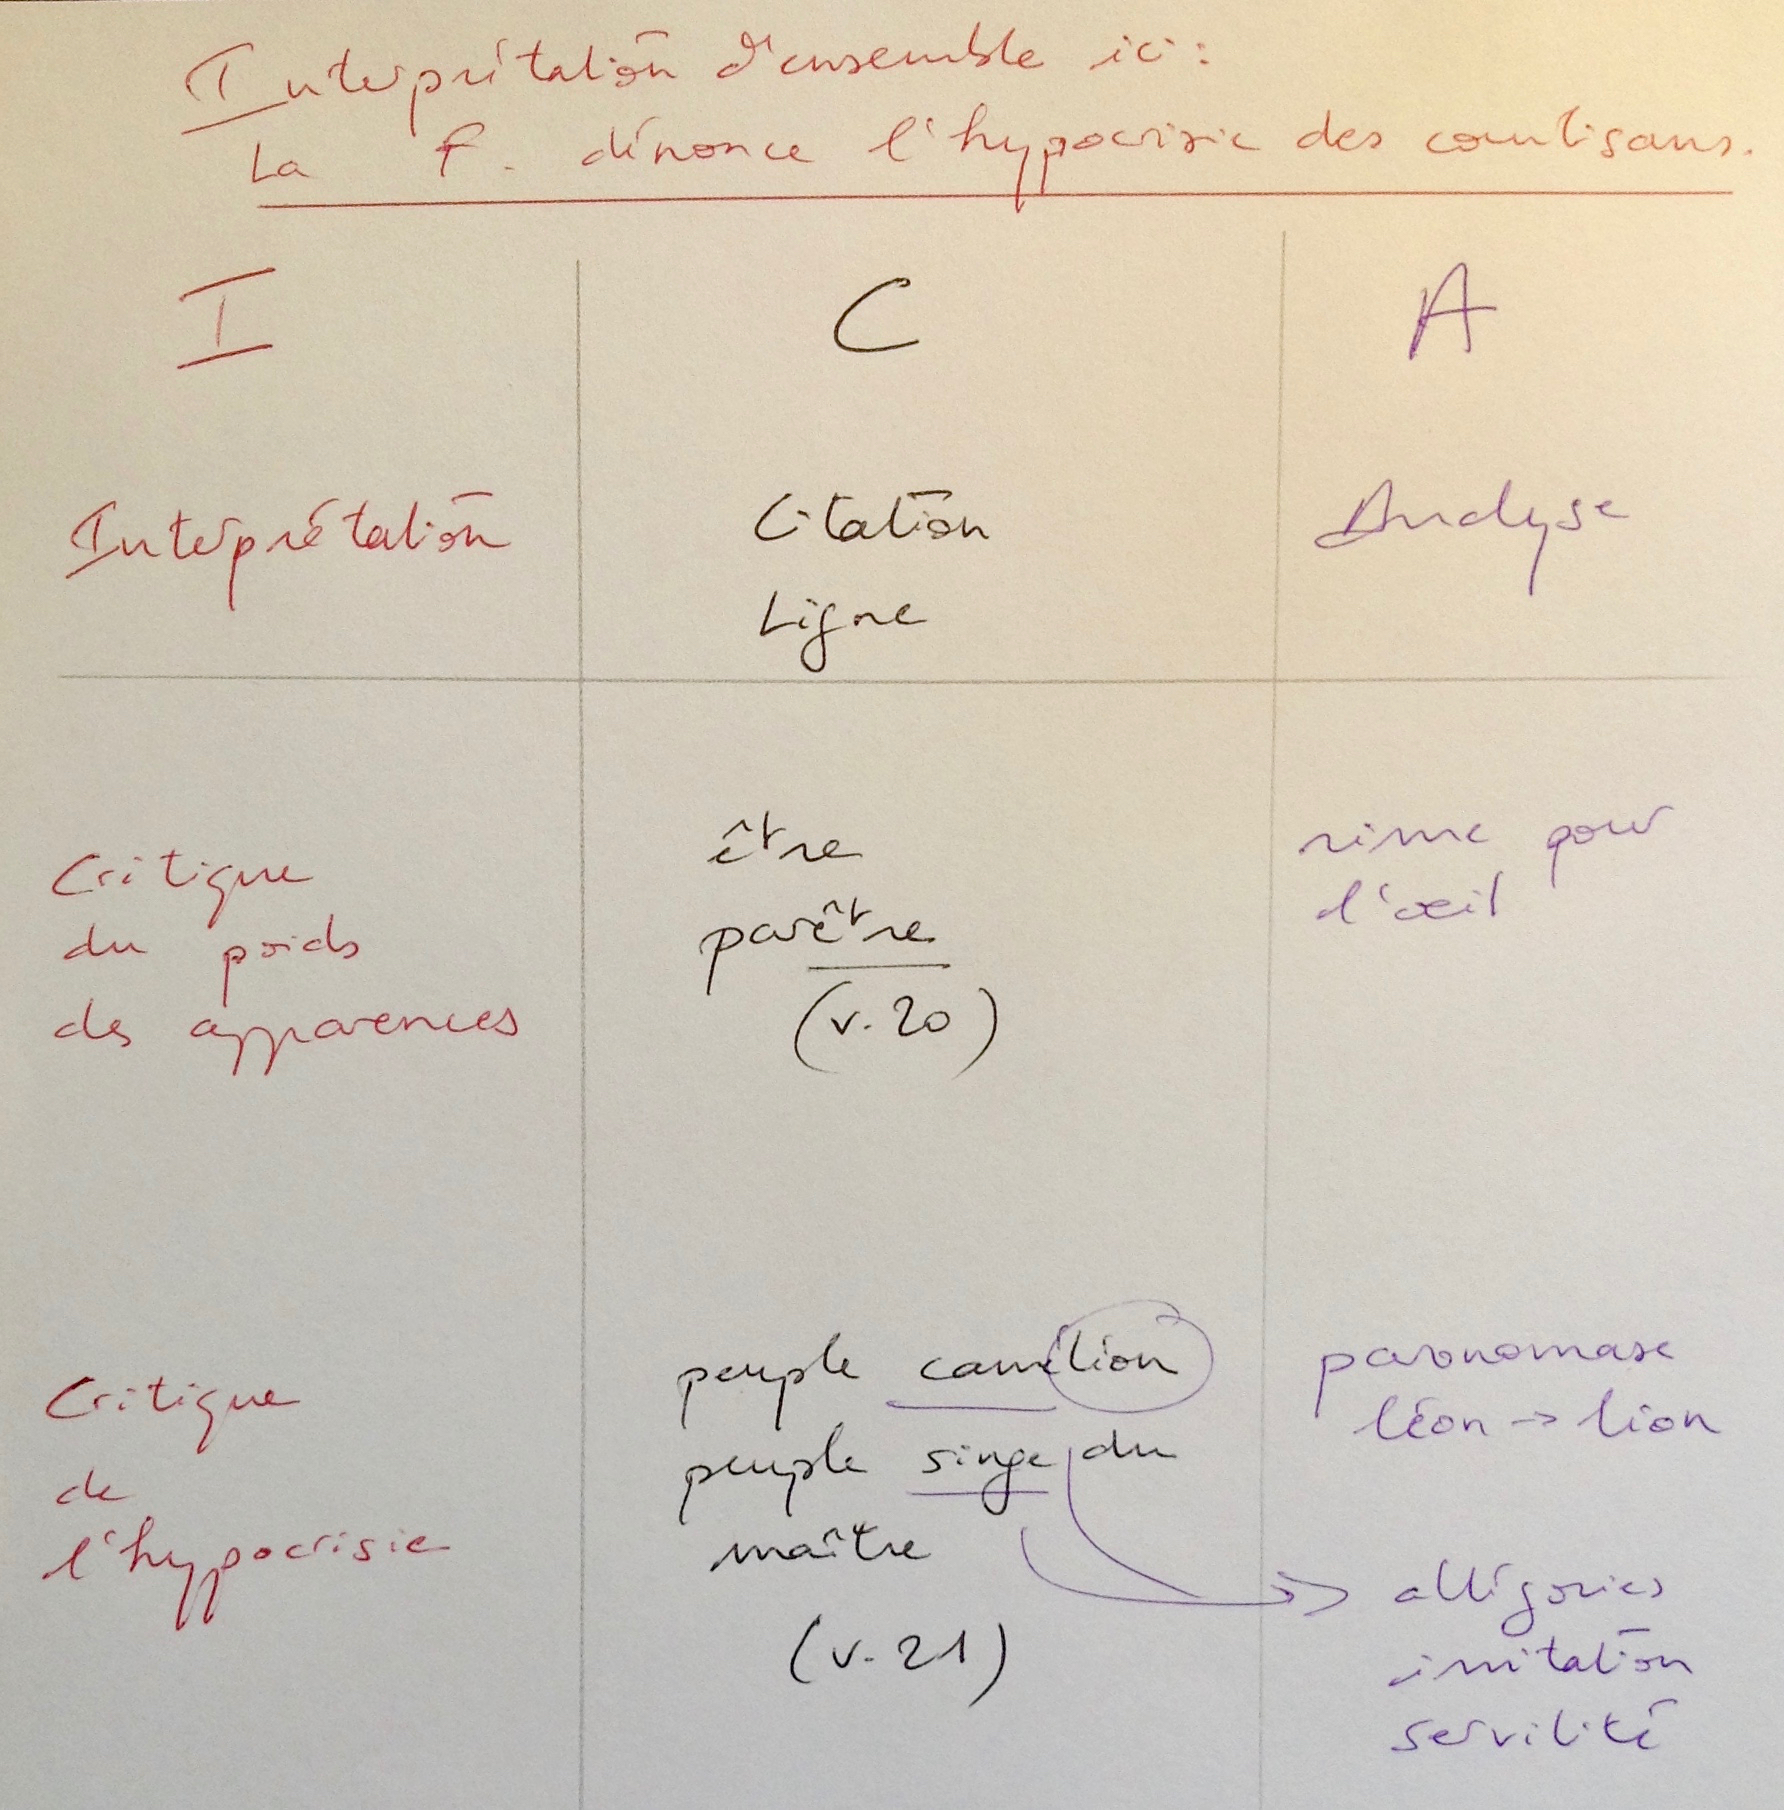 Interprétation d'ensemble ici :
La F. dénonce l'hypocrisie des courtisans.
I
C
A
Interprétation
Citation
Ligne
Analyse
Critique
du poids
des apparences
être
parêtre
(v. 20)
rime pour
l'œil
Critique
de
l'hypocrisie
peuple camélion
peuple singe du
maître
(v. 21)
paronomase
léon → lion
allégories
imitation
servilité